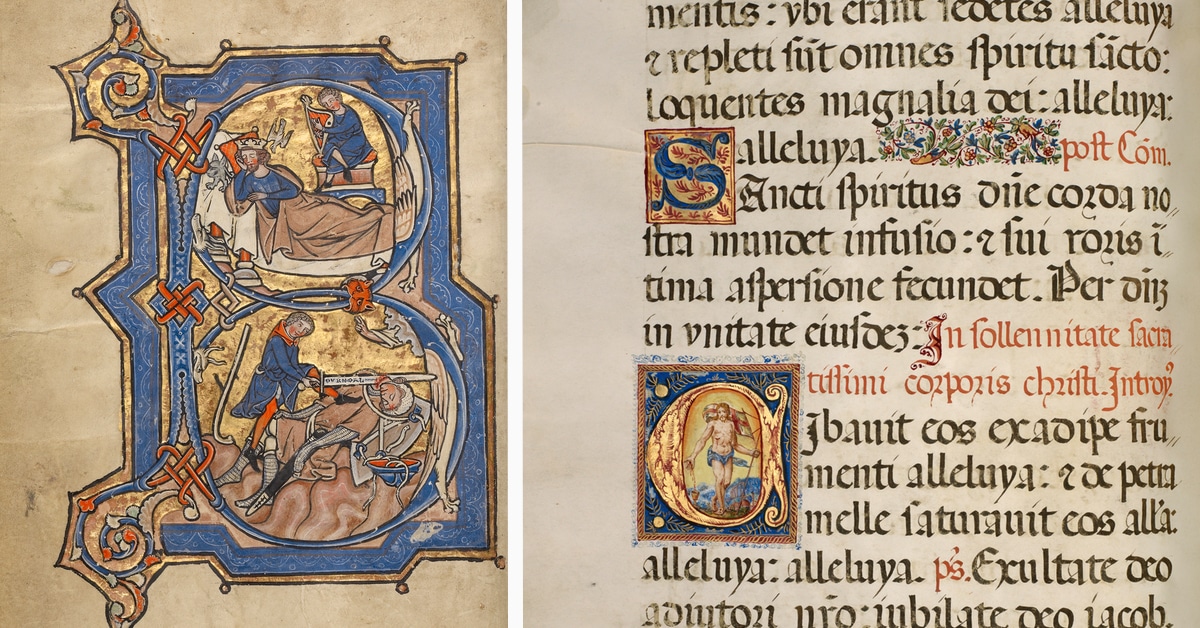 mentis: vbi erant sedētes alleluya
⁊ repleti sūt omnes spiritu sācto:
loquentes magnalia dei: alleluya:
alleluya. post Cōm.
SAncti spiritus dñe corda no„
stra mundet infusio: ⁊ sui roris ī„
tima aspersione fecundet. Per dñz
in vnitate eiusdez: In sollennitate sacra„
tissimi corporis christi. Introy⁹.
CIbauit eos exadipe fru„
menti alleluya: ⁊ de petra
melle saturauit eos all'a:
alleluya: alleluya. ps̃. Exultate deo
adiutori nr̃o: iubilate deo iacob.